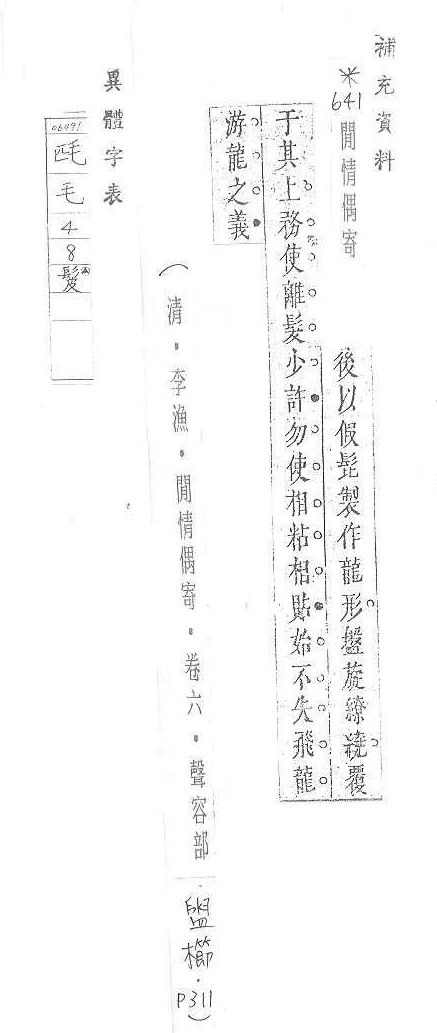 補充資料
*641 閒情偶寄
後以假髢製作龍形盤旋繚繞覆
于其上務使離髮少許勿使相粘相貼始不失飛龍
游龍之義
(清．李漁．閒情偶寄．卷六．聲容部．盥櫛．P311)
異體字表
06491
毛
4
8
髮